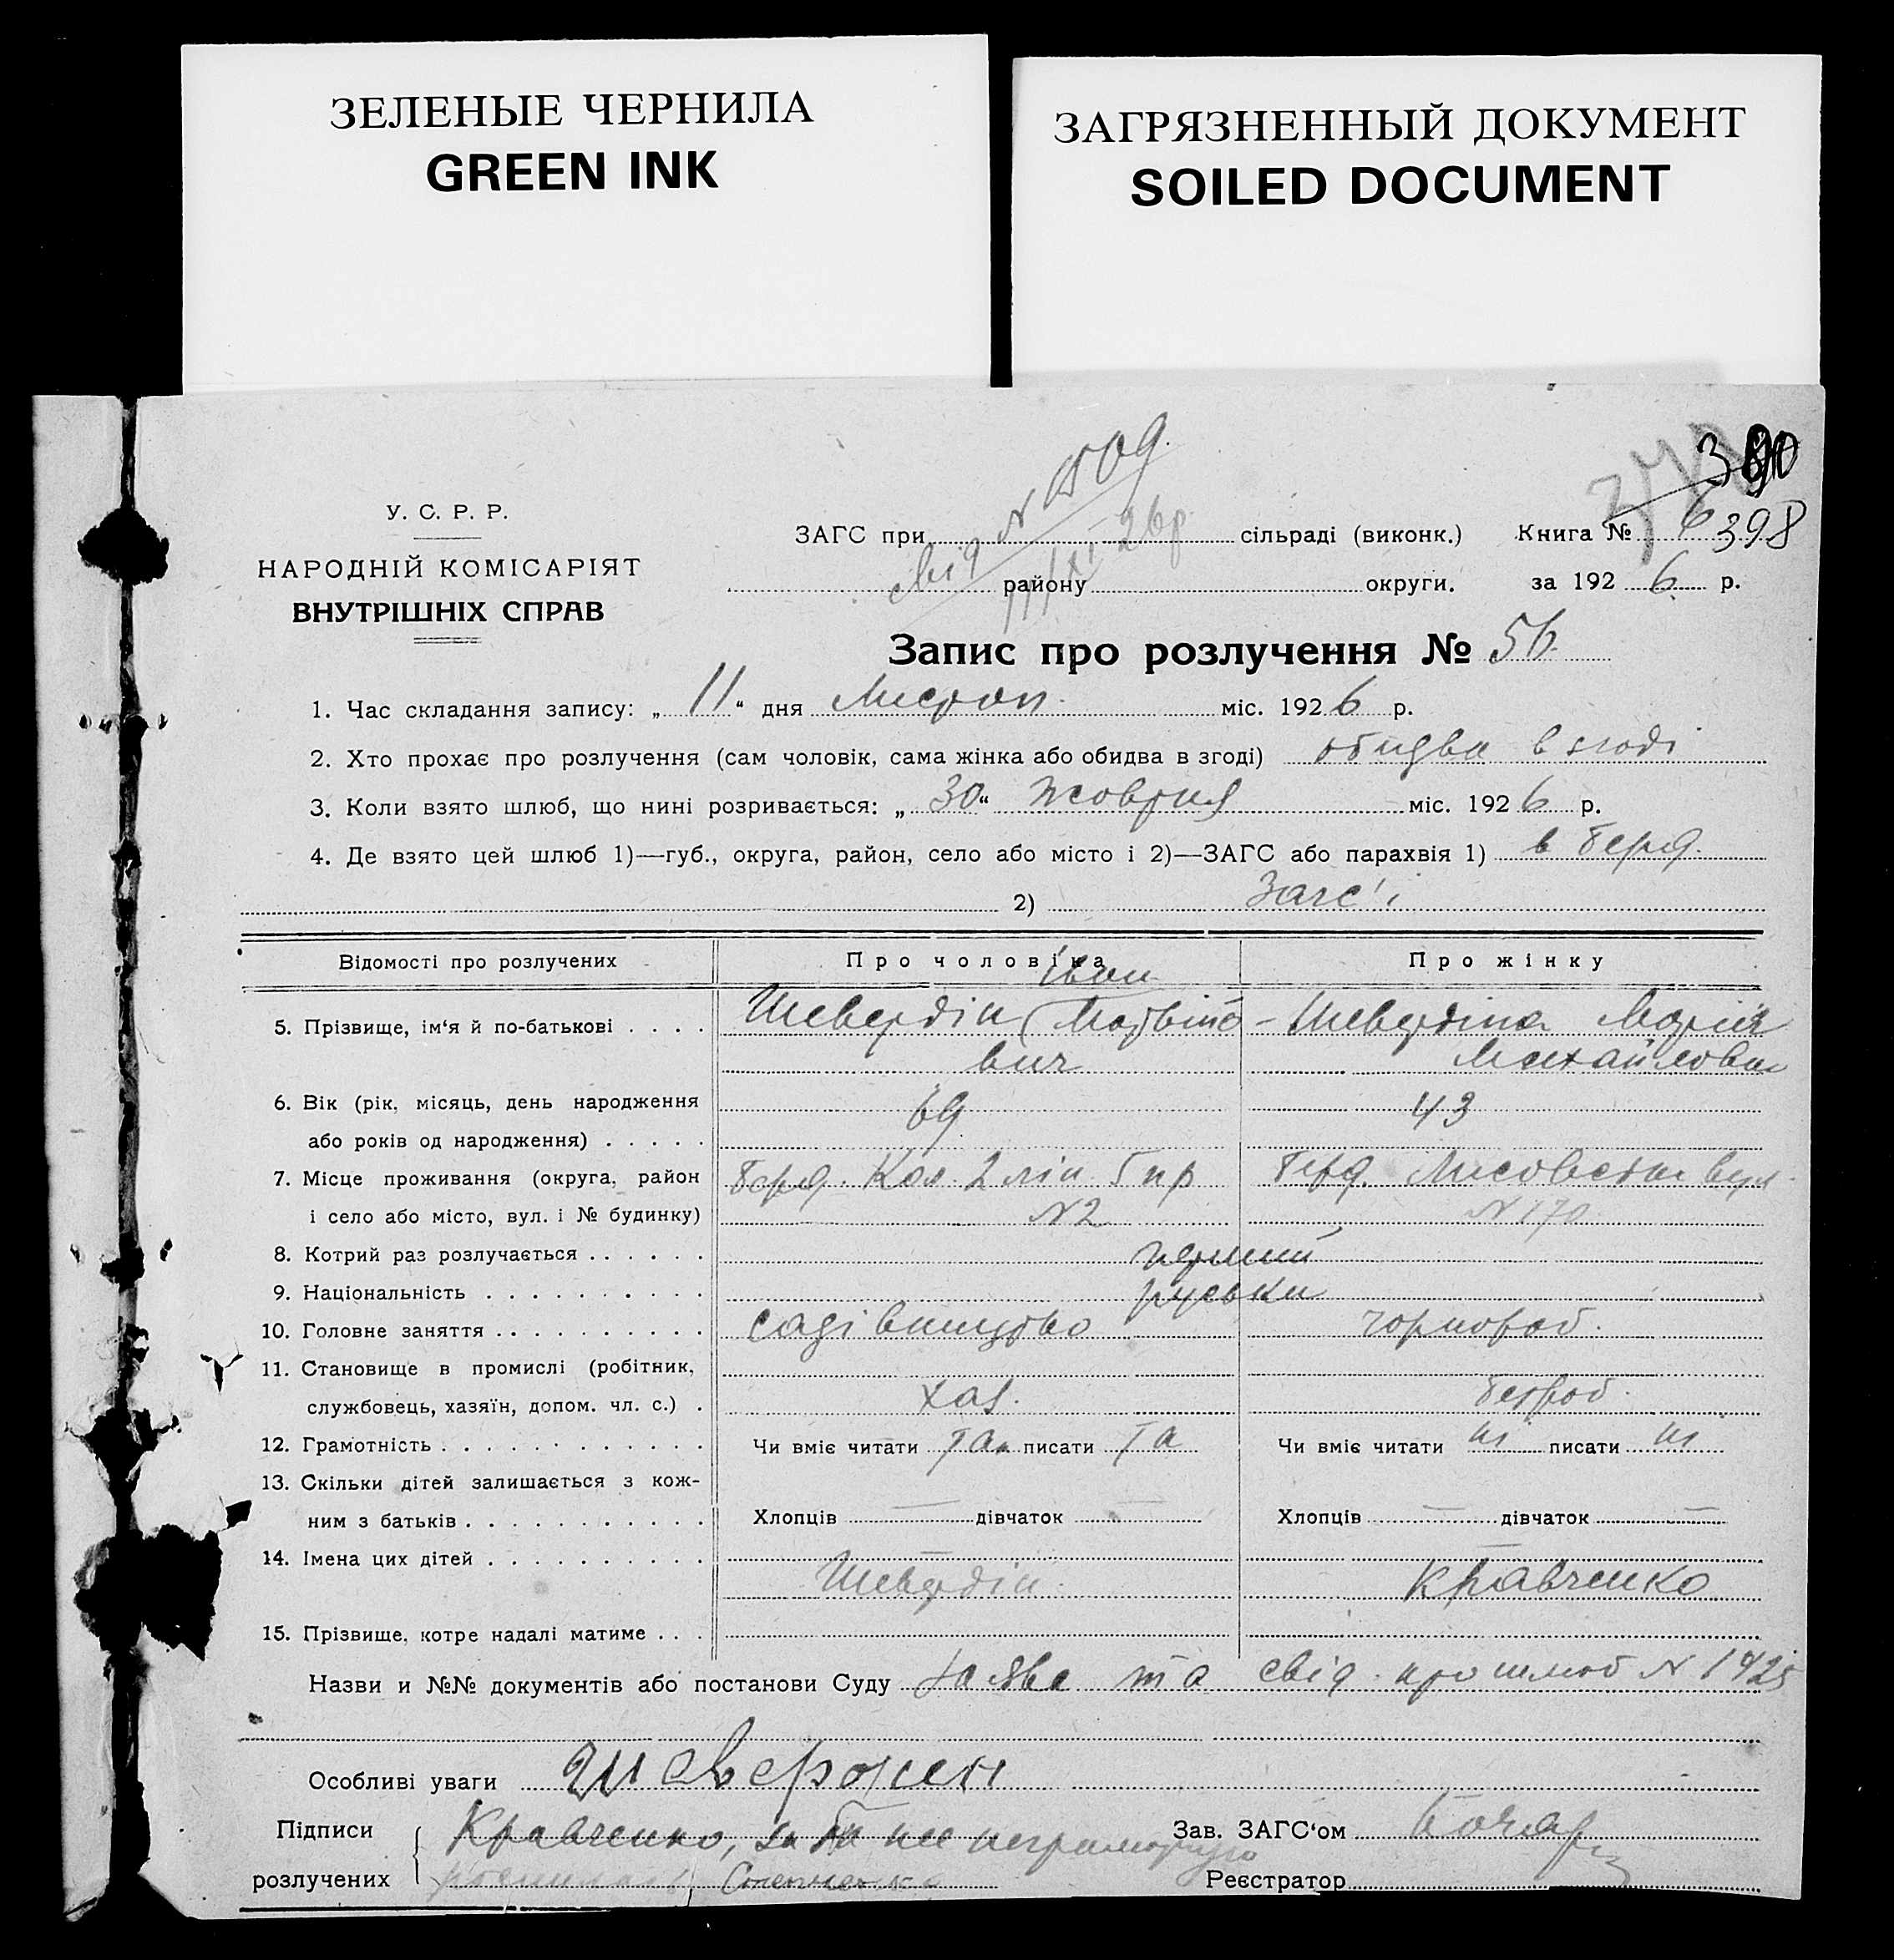 ЗЕЛЕНЫЕ ЧЕРНИЛА
GREEN INK
ЗАГРЯЗНЕННЫЙ ДОКУМЕНТ
SOILED DOCUMENT
390
У. С. Р. Р.
НАРОДНІЙ КОМІСАРІЯТ
ВНУТРІШНІХ СПРАВ
свід N 1509
11/XI 26р.
ЗАГС при сільраді (виконк.) Книга № 398
району округи. за 1926 р.
Запис про розлучення № 56
1. Час складання запису: „11“ дня Листоп. міс. 1926 р.
2. Хто прохає про розлучення (сам чоловік, сама жінка або обидва в згоді) обидва в згоді
3. Коли взято шлюб, що нині розривається: „30“ Жовтня міс. 1926 р.
4. Де взято цей шлюб 1)—губ., округа, район, село або місто і 2)—ЗАГС або парахвія 1) в Берд.
2) Загс'і
Відомості про розлучених Про чоловіка Про жінку
Іван
5. Прізвище, ім‘я й по-батькові . . . . Шевердін Матвіє- Шевердіна Марія
вич Михайловна
6. Вік (рік, місяць, день народження 69 43
або років од народження) . . . . .
7. Місце проживання (округа, район Берд. Кол. 2 лін. 5 пр Берд. Лисовская вул.
і село або місто, вул. і № будинку) N2 N 170
8. Котрий раз розлучається . . . . . . перший
9. Національність . . . . . . . . . . руськи
10. Головне заняття . . . . . . . . . . садівництво чорнороб.
11. Становище в промислі (робітник,
службовець, хазяїн, допом. чл. с.) . хаз. безроб.
12. Грамотність . . . . . . . . . . . . Чи вміє читати так писати та Чи вміє читати ні писати ні
13. Скільки дітей залишається з кож-
ним з батьків . . . . . . . . . . . Хлопців — дівчаток — Хлопців — дівчаток —
14. Імена цих дітей . . . . . . . . . . — —
Шевердін Кравченко
15. Прізвище, котре надалі матиме . . .
Назви и №№ документів або постанови Суду заява та свід. про шлюб N 1425
Особливі уваги
Підписи Кравченко, за неі неграмотную Зав. ЗАГС‘ом
розлучених Реєстратор